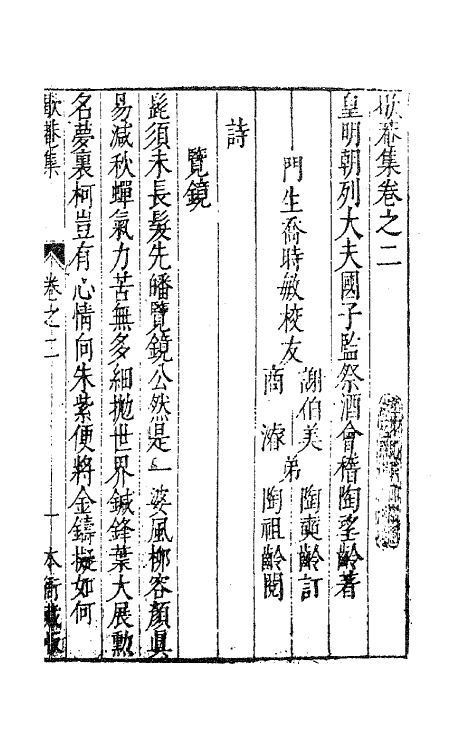 歇菴集卷之二
皇明朝列大夫國子監祭酒會稽陶望齡著
門生喬時敏校友
謝伯美
商濬
弟
陶奭齡訂
陶祖齡閱
詩
覽鏡
髭須未長髮先皤覽鏡公然是一婆風柳容顏真
易減秋蟬氣力苦無多細拋世界鍼鋒葉大展勲
名夢裏柯豈有心情向朱紫便將金鑄擬如何
歇菴集
卷之二
一
本衙藏版